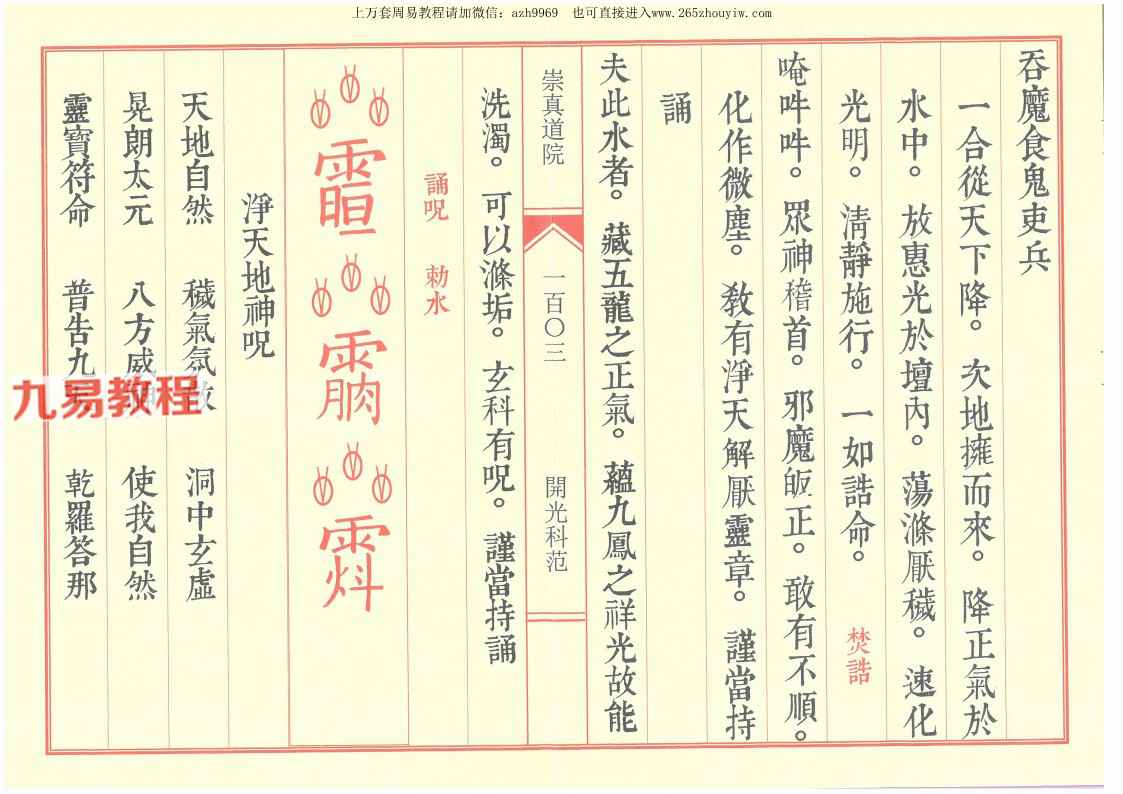 上万套周易教程请加微信：azh9969　也可直接进入www.265zhouyiw.com
吞魔食鬼吏兵
一合從天下降。次地擁而來。降正氣於
水中。放惠光於壇內。蕩滌厭穢。速化
光明。清靜施行。一如誥命。 焚誥
唵吽吽。眾神稽首。邪魔皈正。敢有不順。
化作微塵。敎有淨天解厭靈章。謹當持
誦
夫此水者。藏五龍之正氣。蘊九鳳之祥光故能
崇真道院 一百〇三 開光科范
洗濁。可以滌垢。玄科有呪。謹當持誦
誦呪 勅水
淨天地神呪
天地自然 穢氣氛 洞中玄虛
晃朗太元 八方威 使我自然
靈寶符命 普告九 乾羅答那
九易教程